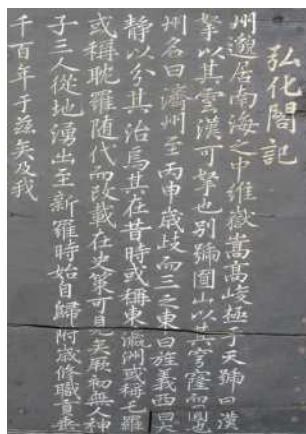 弘化閣記
州邈居南海之中維嶽嵩高峻極于天號曰漢
拏以其雲漢可拏也別號圓山以其穹窿而圓也
州名曰濟州至丙申歲歧而三之東曰旌義西曰大
静以分其治焉其在昔時或稱東瀛洲或稱乇羅
或稱耽羅随代而改載在史策可見矣厥初無人神
子三人從地湧出至新羅時始自歸附歲修職貢垂
千百年于茲矣及我